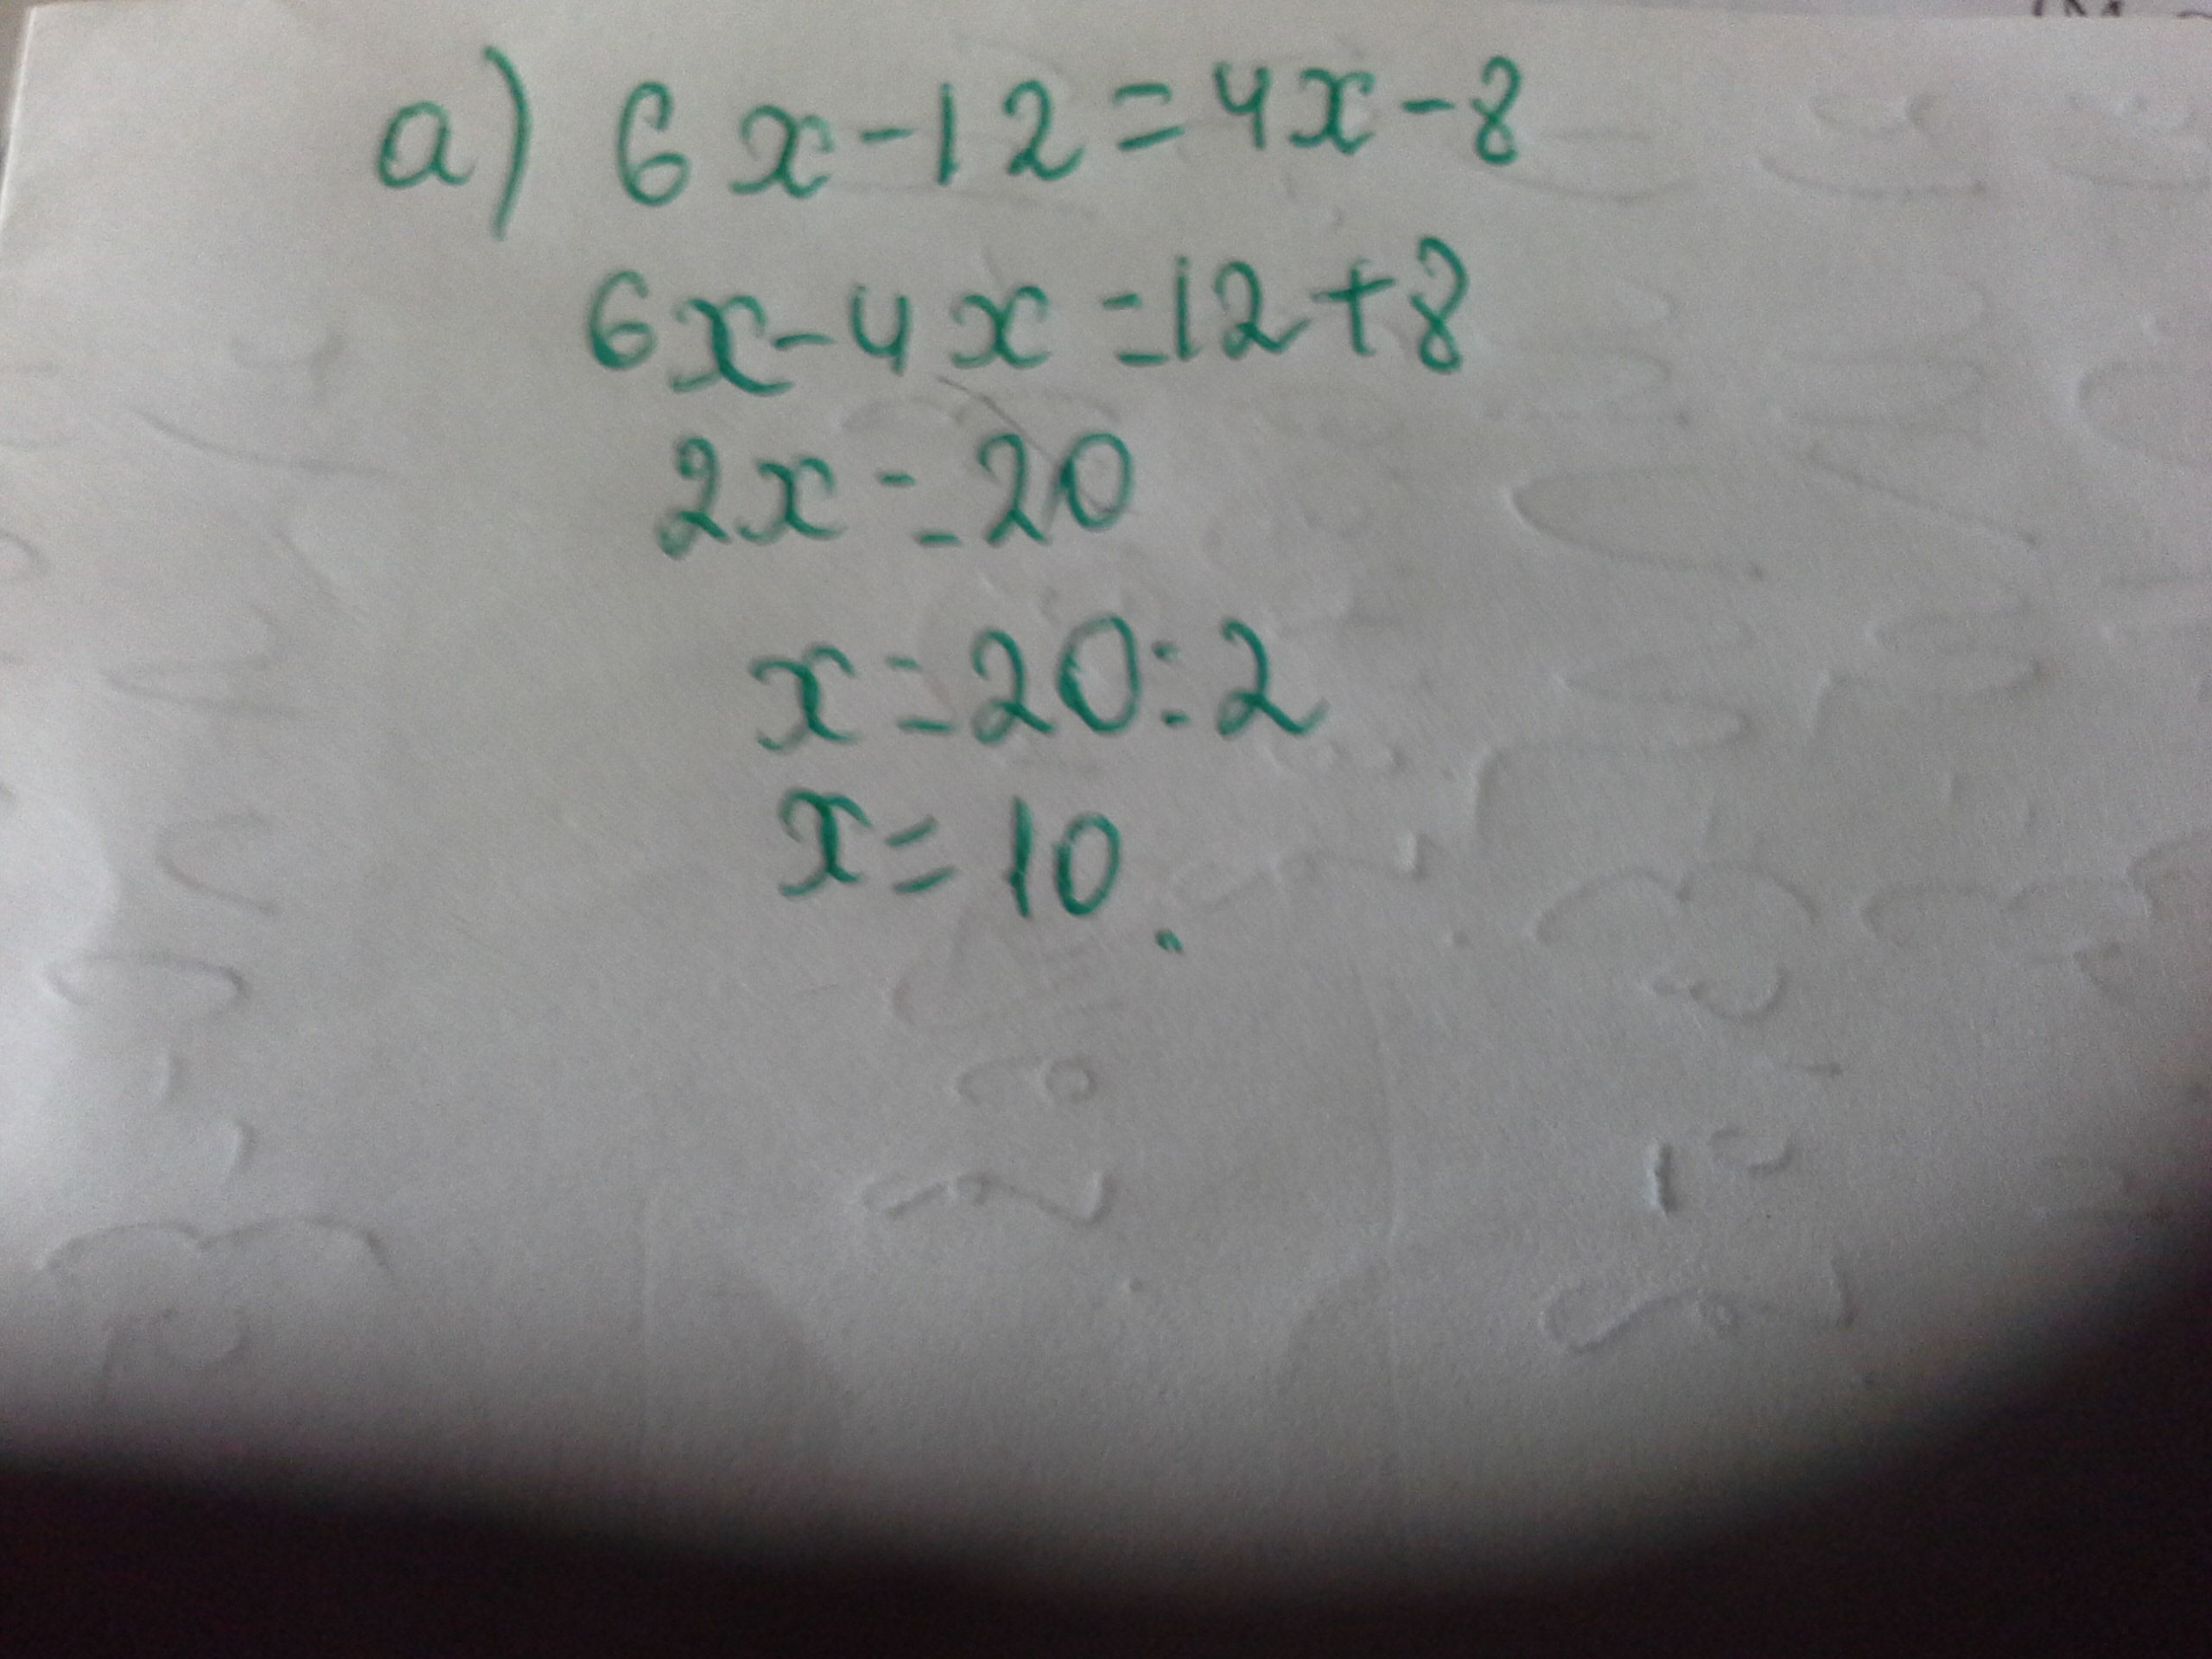 a) 6x-12=4x-8
6x-4x=12+8
2x=20
x=20:2
x=10.